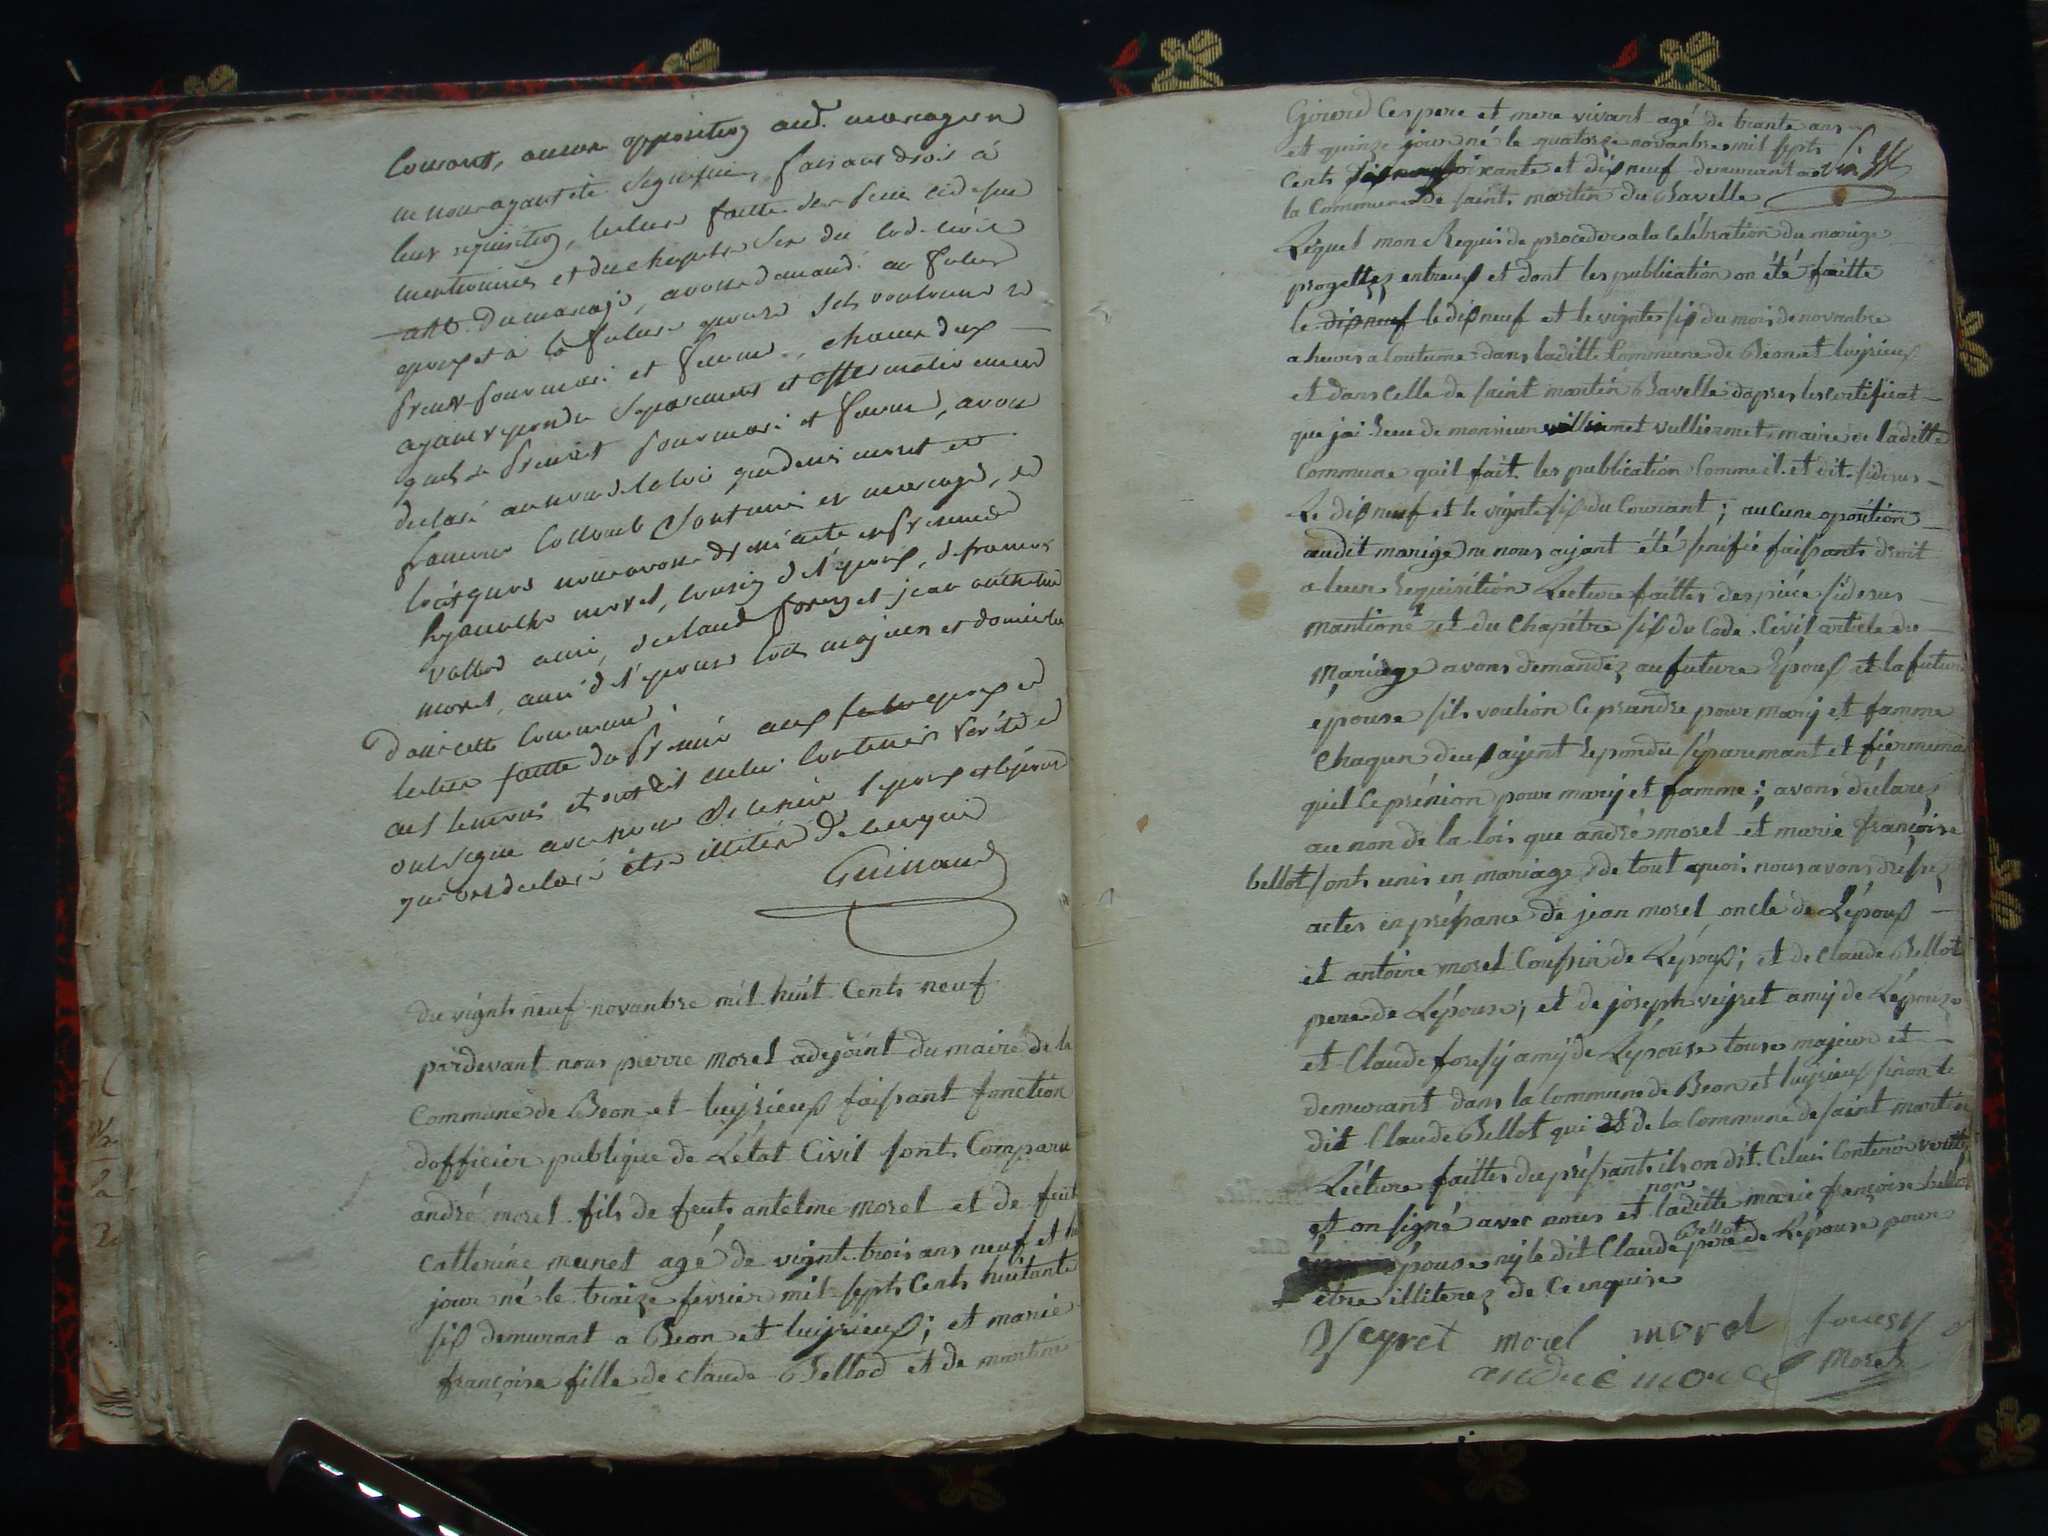 Courant, aucune opposition aud. mariage ne
ne nous ayant été signifiée, faisant droit à
leur requisition, lecture faitte des pieces cidessus
mentionnées et du chapitre six du Cod. civil
art. du mariage, avons demandé au futur
epoux et à la future epouse s'ils vouloient se
prendre pour mari et femme, chacun deux
ayant repondu separement et affermativement
quils se prenoit pour mari et femme, avons
declaré au nom de la loi que denis moret et
francoise Collomb sont unis en mariage, de
moret, ami de l'epouse tous majeurs et domiciliés
dans cette Commune.
lecture faitte du present aux epoux et
qui ont declaré être illiteré de ce enquis
Guillaud
du vignt neuf novanbre mil huit Cents neuf
pardevant nous pierre morel adejoint du maire de la
Commune de Beon et luyrieuβ faisant fonction
dofficier publique de Létat Civil sonts Comparu
andré morel fils de feuts antelme morel et de feut
Catterine meunet agé de vignt trois ans neuf et
jour né le traize fevrier mil septs Cents huitante
siβ demurant a Beon et luyrieuβ; et marie
françoise fille de claude Bellod et de martine
Girerd Ces pere et mere vivant agé de trante ans
et quinze jour né le quatorze novanbre mil septs
Cents soixante et diβneuf demurant a
la Commune de saint martin du Bavelle
Lesquel mon Requis de proceder a la Celébration du mariage
progettez entreuβ et dont les publication on été faitte
le diβneuf le diβneuf et le vignte siβ du mois de novanbre
a heures a Coutume dans laditte Commune de Beon et luyrieuβ
et dans Celle de saint martin Bavelle dapres les certificat
que jai Reeu de monsieur vulliermet maire de laditte
Commune quil fait les publication Comme il et dit sidesus
Le diβneuf et le vignte siβ du Courant; aucune oposition
audit mariage ne nous ayant été sinifié faisants droit
a leur Requisition Lecture faitte des piéce sidesus
mantioné et du Chapitre siβ du Code Civil article du
Mariage avons demandéz au future Epouβ et la future
epouse sils voulion Ce prandre pour mary et famme
Chaqun deuβ ayent repondu séparemant et fiérmemant
quil Ce prénion pour mary et famme; avons declarez
au non de la lois que andré morel et marie françoise
bellot sonts unis en mariage de tout quoi nous avons dréssez
actes en présance de jean morel oncle de Lépouβ
et antoine morel Coussin de Lépouβ; et de Claude Bellot
pere de Lépouse; et de joseph veyret amy de Lépouse
et Claude foresy amy de Lépouse tous majeurs et
demurant dans la Commune de Beon et luyrieuβ sinon le
dit Claude Bellot qui est de la Commune de saint martin
Lécture faitte du présant ils on dit Celui Contenir verité
et on signé avec nous et non laditte marie françoise bellot
épouse ny le dit Claude Bellot pere de Lépouse pour
être illiterez de Ce enquise
Veyret morel morel fouresy
andré morel Morel